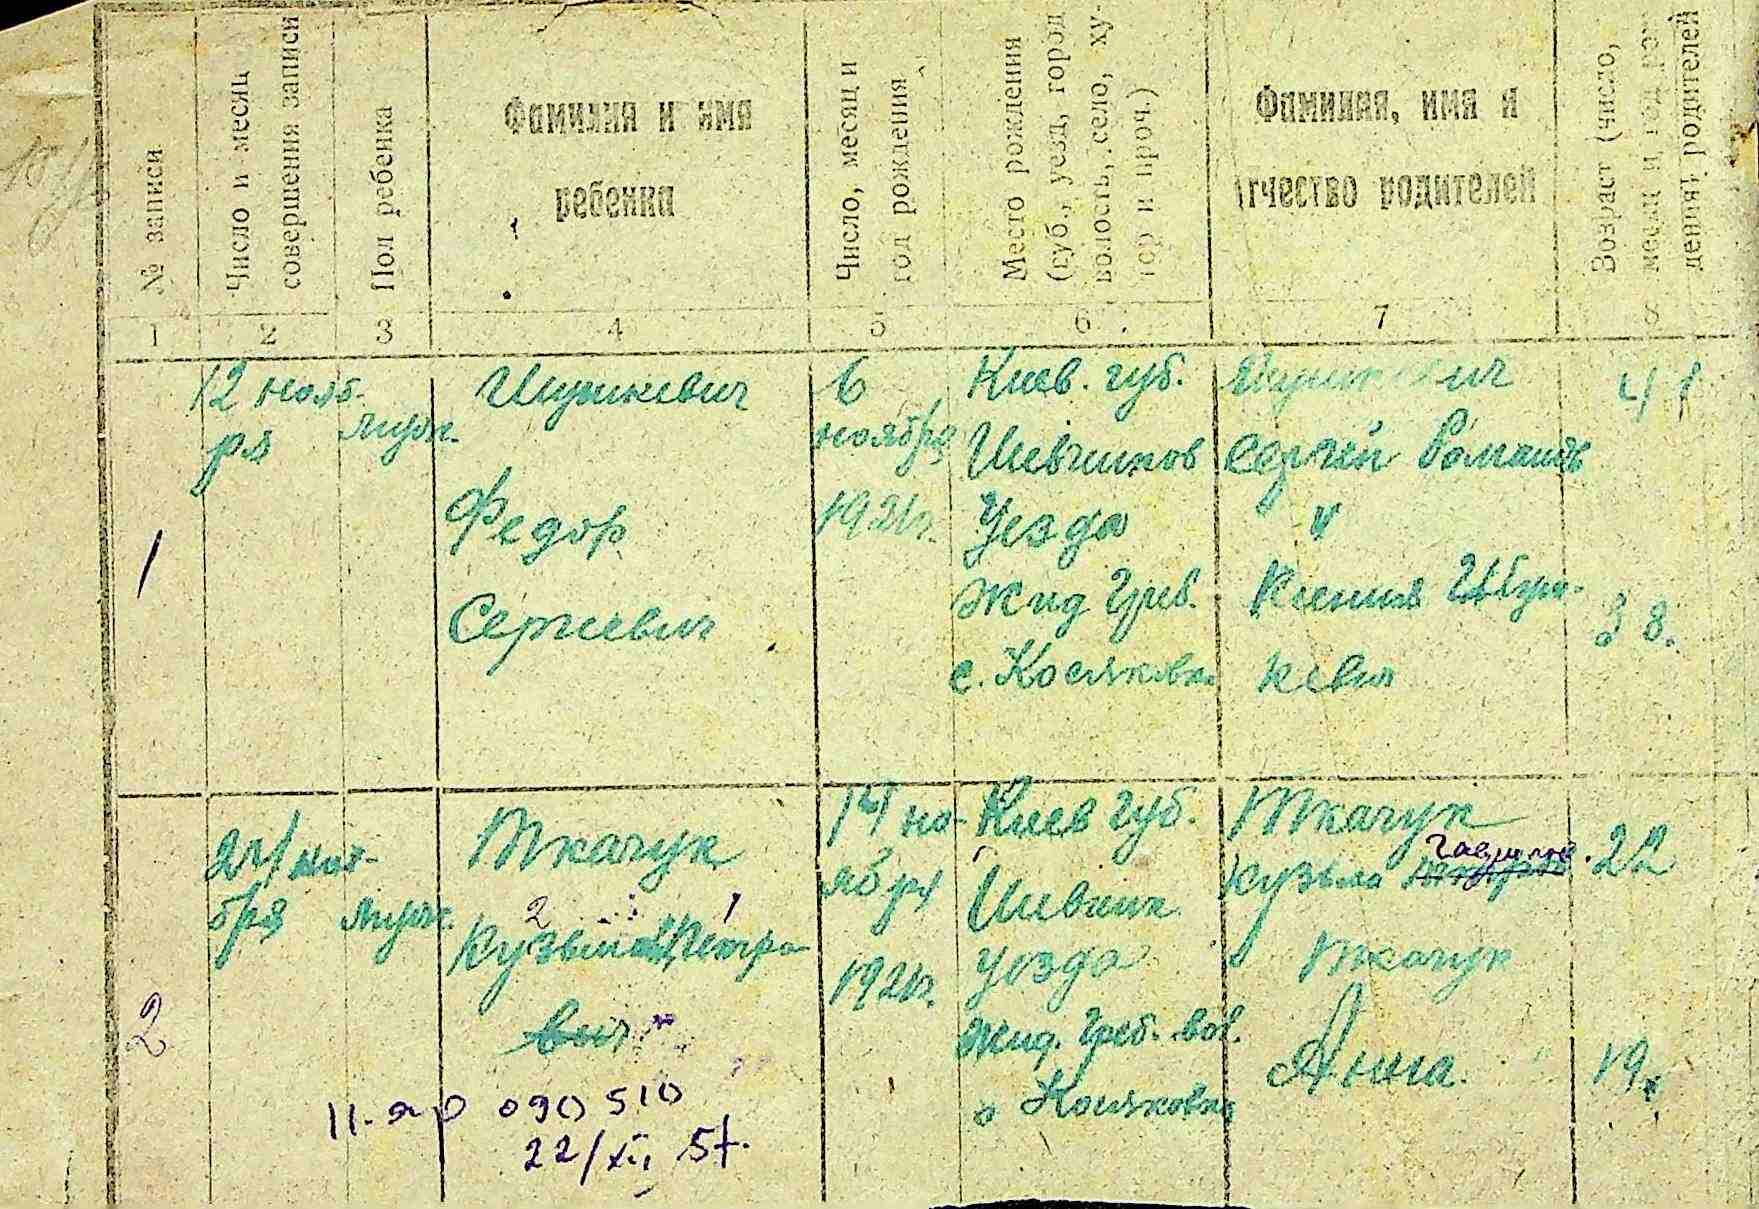 № записи
Число и месяц
совершения записи
Пол ребенка
Фамилия и имя
ребенка
Число, месяц и
год рождения
Место рождения
(губ., уезд, город,
волость, село, ху-
тор и проч.)
Фамилия, имя и
отчество родителей
Возраст (число,
месяц и год рож
дения) родителей
1 2 3 4 5 6 7 8
1
12 нояб-
ря
мужс.
Шушкевич
Федор
Сергеевич
6
ноября
1921г.
Киев. губ.
Уезда
Жид Греб.
с. Косяковка
Сергей
и
Ксения
кевич
41
38.
2
24 ноя-
бря
мужс.
Ткачук
2 1
Кузьма Петро
вич
14 но-
ября
1921г.
Киев губ.
уезда
Жид. Греб. вол.
с Косяковка
Ткачук
Кузьма
Ткачук
Анна.
22
19.
090 510
22/XII 57.